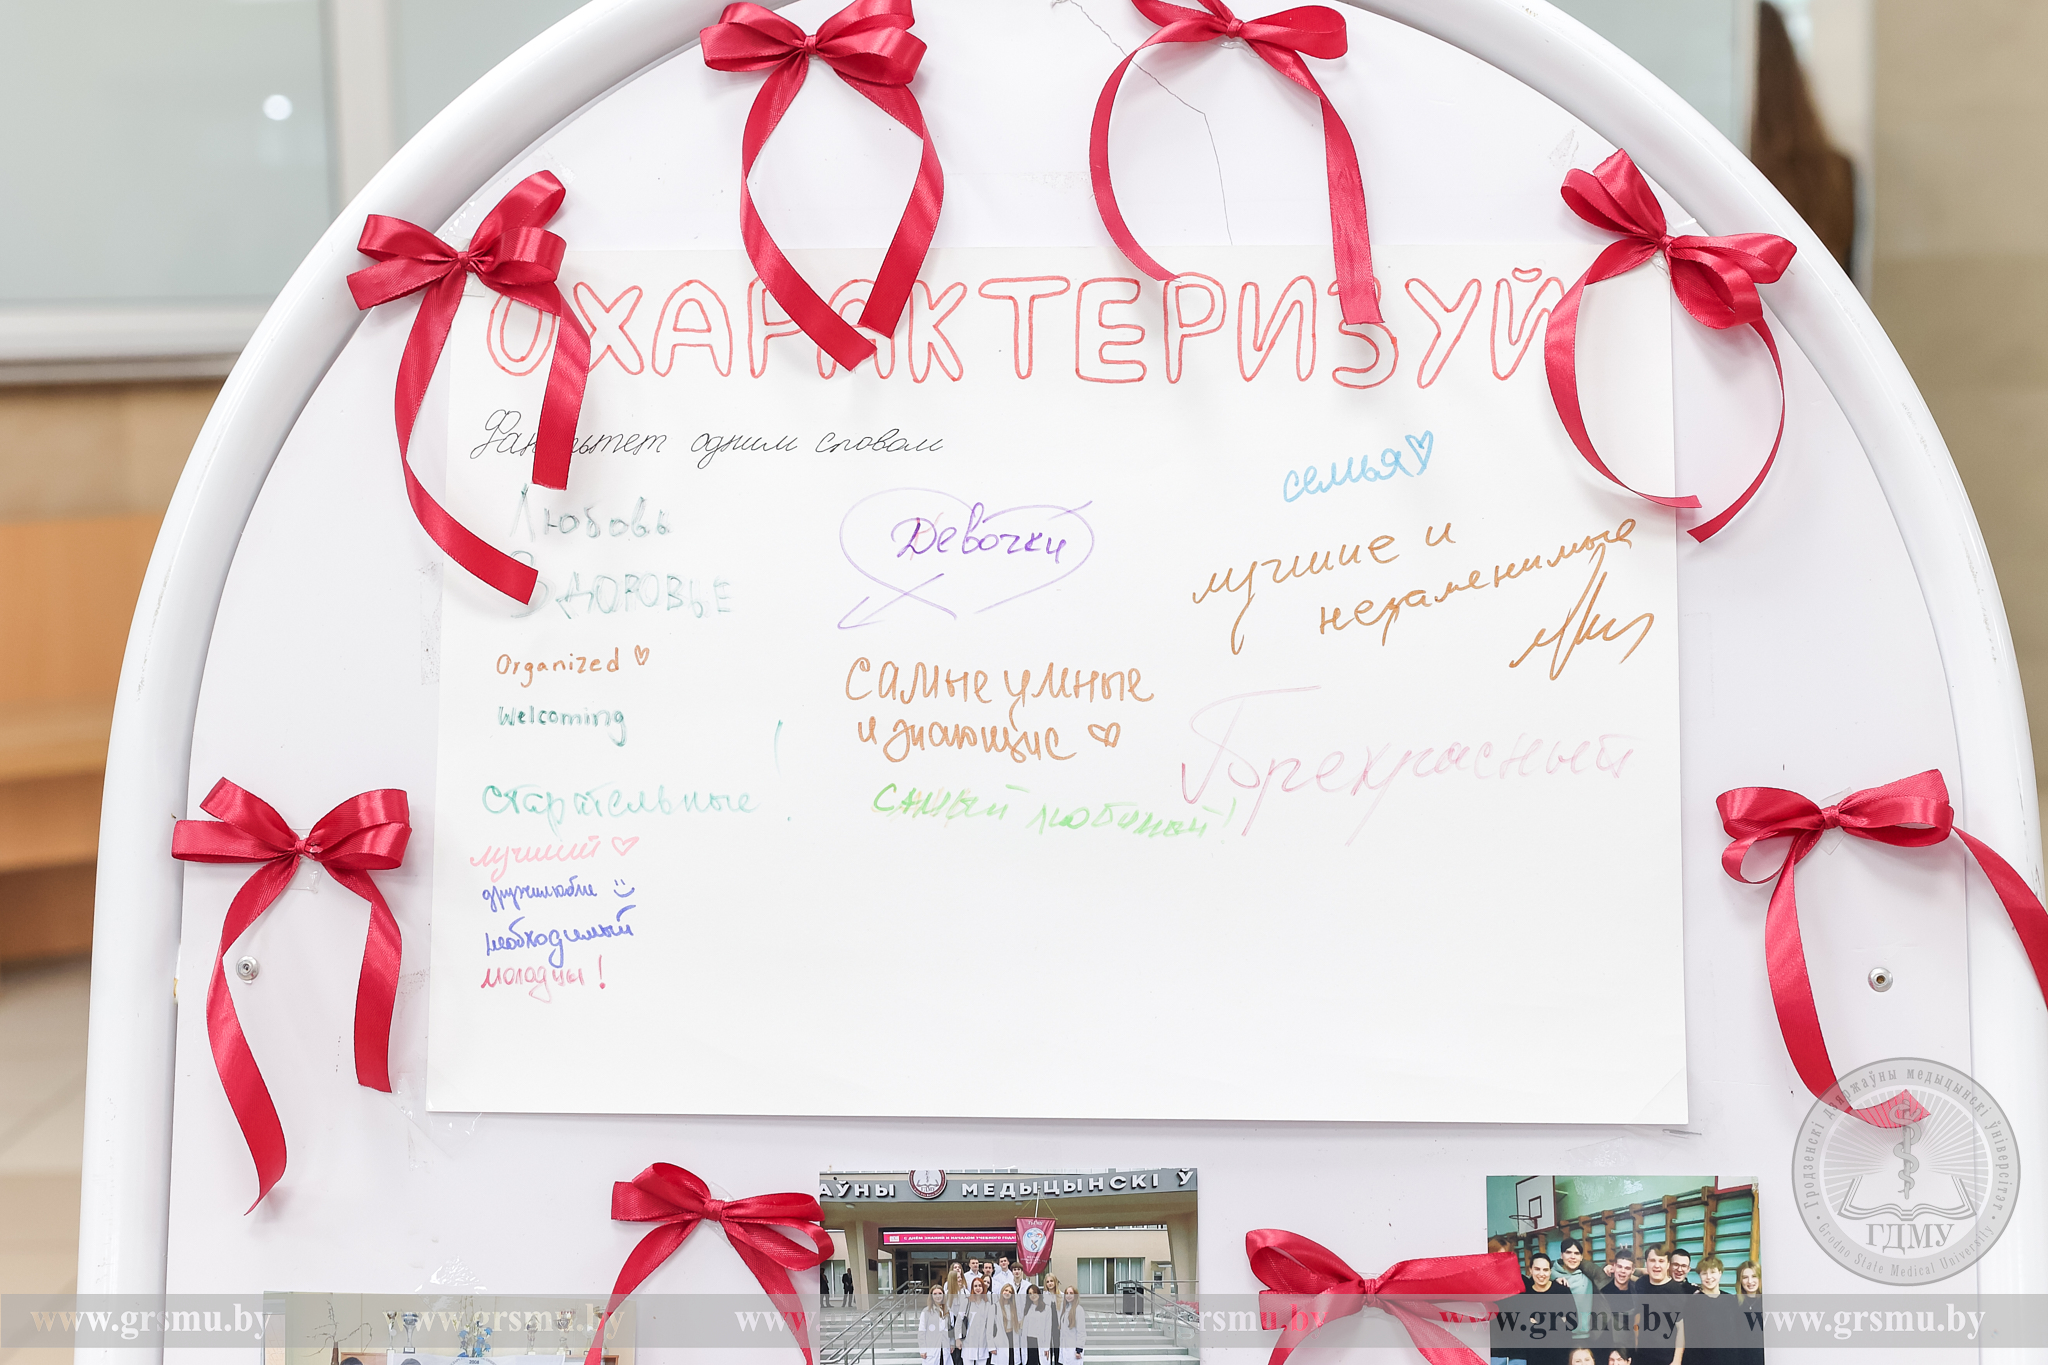 ОХАРАКТЕРИЗУЙ
Факультет одним словом
Любовь
Здоровье
Organized
Welcoming
старательные !
лучший
дружелюбие
необходимый
молодцы!
Девочки
Самые умные
и знающие
самый любимый!
семья
лучшие и
незаменимые
Прекрасный
АЎНЫ МЕДЫЦЫНСКІ Ў
С ДНЁМ ЗНАНИЙ И НАЧАЛОМ УЧЕБНОГО ГОДА!
2008
Гродзенскі дзяржаўны медыцынскі ўніверсітэт
ГДМУ
Grodno State Medical University
www.grsmu.by www.grsmu.by www.grsmu.by www.grsmu.by www.grsmu.by www.grsmu.by